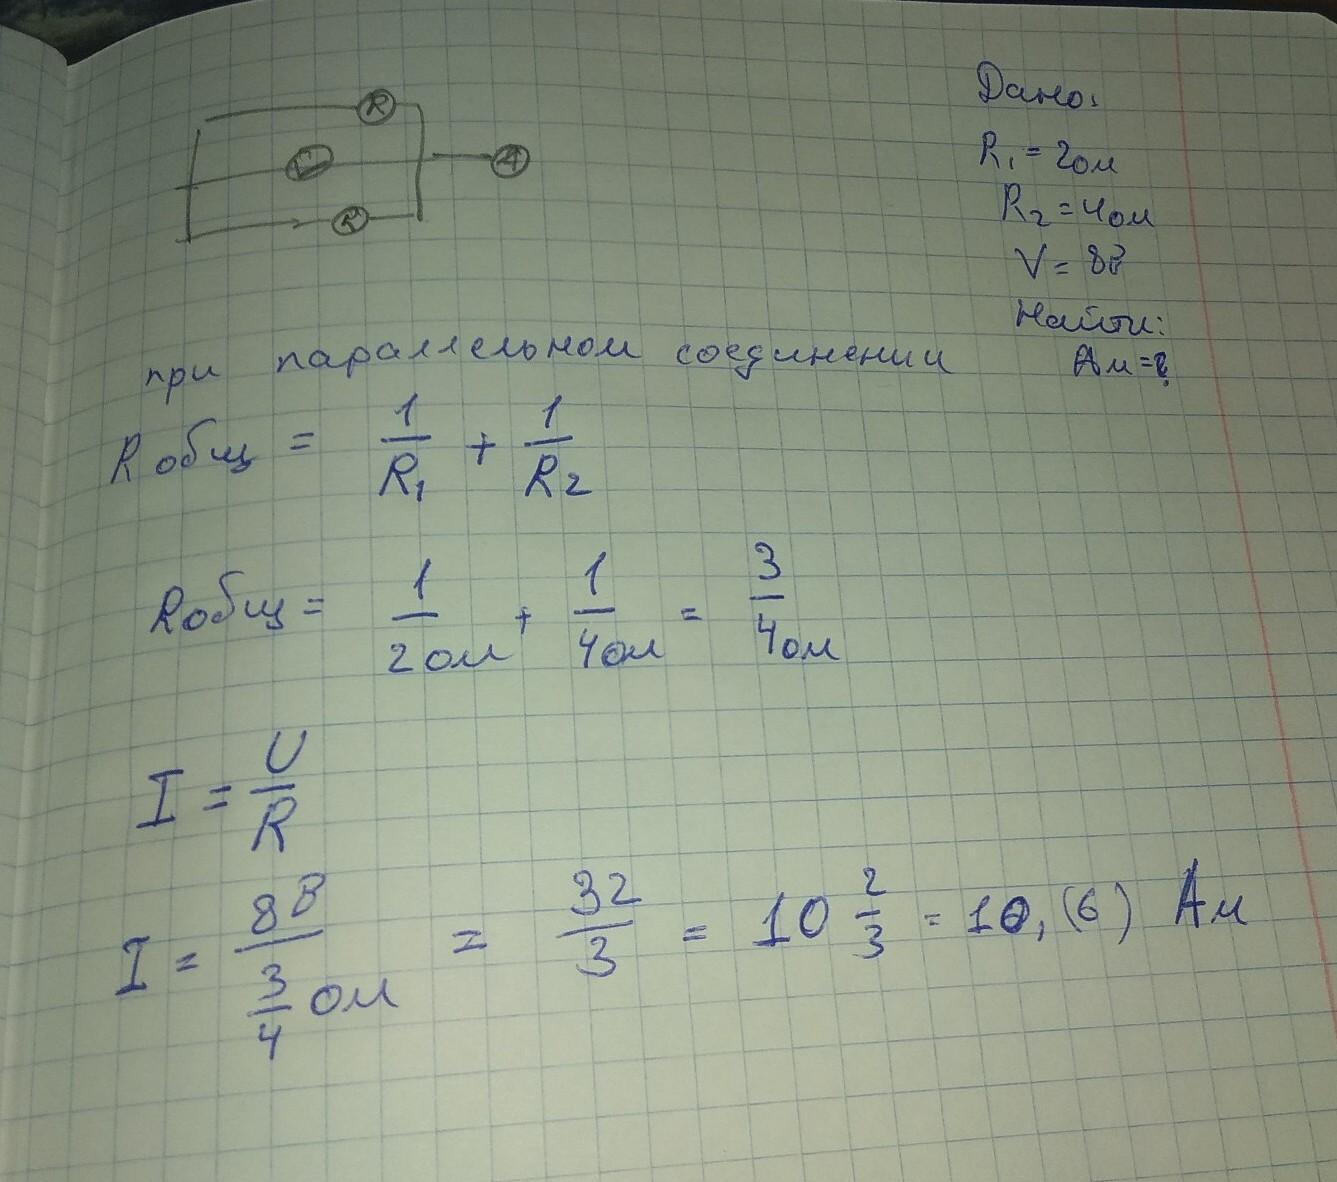 R
V
R
A
Дано:
R₁ = 2ом
R₂ = 4ом
V = 8В
Найти:
Ам = ?
при параллельном соединении
Rобщ = 1/R₁ + 1/R₂
Rобщ = 1/2ом + 1/4ом = 3/4ом
I = U/R
I = 8В/(3/4 ом) = 32/3 = 10 2/3 = 10,(6) Ам